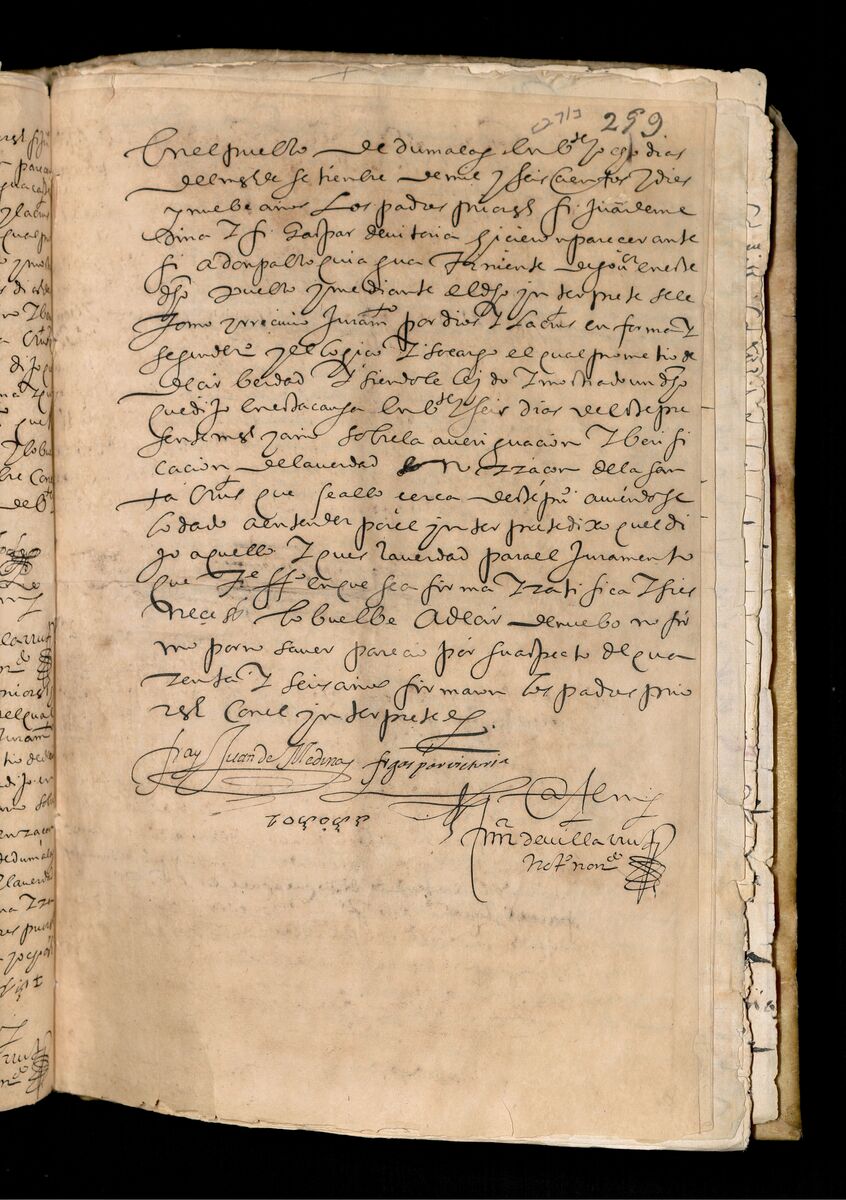 299
En el pueblo de dumalag en bte y ocho dias
del mes de setiembre de mil y seis cientos y dies
y nuebe años Los padres priores fr Juan de me
dina y fr Gaspar de vitoria hicieron parecer ante
si a don pablo teniente de gour en este
dho pueblo y mediante el dho ynterprete se le
tomo y rrecivio Juramto por dios y la crus en forma y
segun dro y el lo hiço y so cargo el qual prometio de
decir berdad y siendole leido y mostrado un dho
que dijo en esta causa en bte y seis dias de este pre
sente mes y año sobre la aueriguación y beri fi
cación de la uerdad en rraçon de la san
ta Crus que se allo cerca de este puo auiendose
lo dado a entender por el ynterprete dixo quel di
jo aquello y ques la uerdad para el Juramento
que tie ffo en que se a firma y rrati fica y si es
neceso lo buelbe A decir de nuebo no fir
mo por no saver parecio por su aspecto de qua
renta y seis años firmaron los padres prio
res con el ynterprete
fray Juan de Medina fr gaspar victoria
Ante mi
mn de uilla rruel
noto nonbrdo